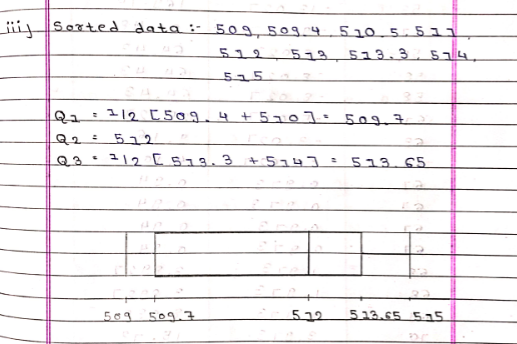 iii] Sorted data :- 509, 509.4, 510.5, 511,
512, 513, 513.3, 514,
515
Q1 = 1/2 [509.4 + 510] = 509.7
Q2 = 512
Q3 = 1/2 [513.3 + 514] = 513.65
509 509.7 512 513.65 515